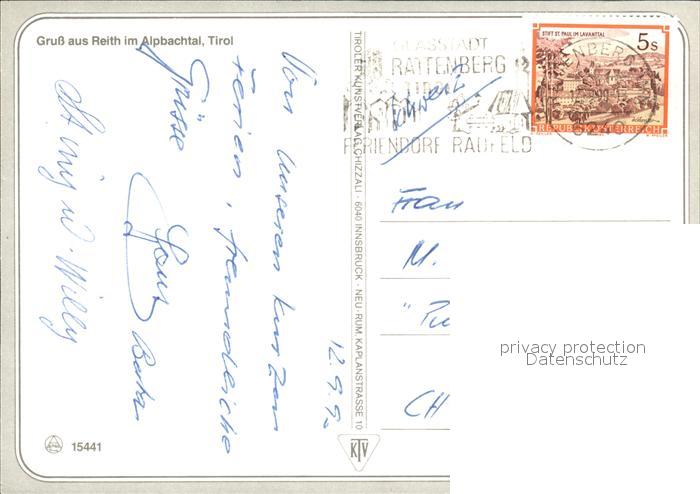 Gruß aus Reith im Alpbachtal, Tirol
12.9.92
Von unseren kurzen
Ferien, freundliche
Grüsse
u. Willy
TIROLER KUNSTVERLAG CHIZZALI · 6040 INNSBRUCK · NEU-RUM, KAPLANSTRASSE 10
KTV
15441
GLASSTADT
RATTENBERG
TIROL
FERIENDORF RADFELD
Schweiz
STIFT ST. PAUL IM LAVANTTAL
5 S
REPUBLIK ÖSTERREICH
Frau
M.
CH
privacy protection
Datenschutz